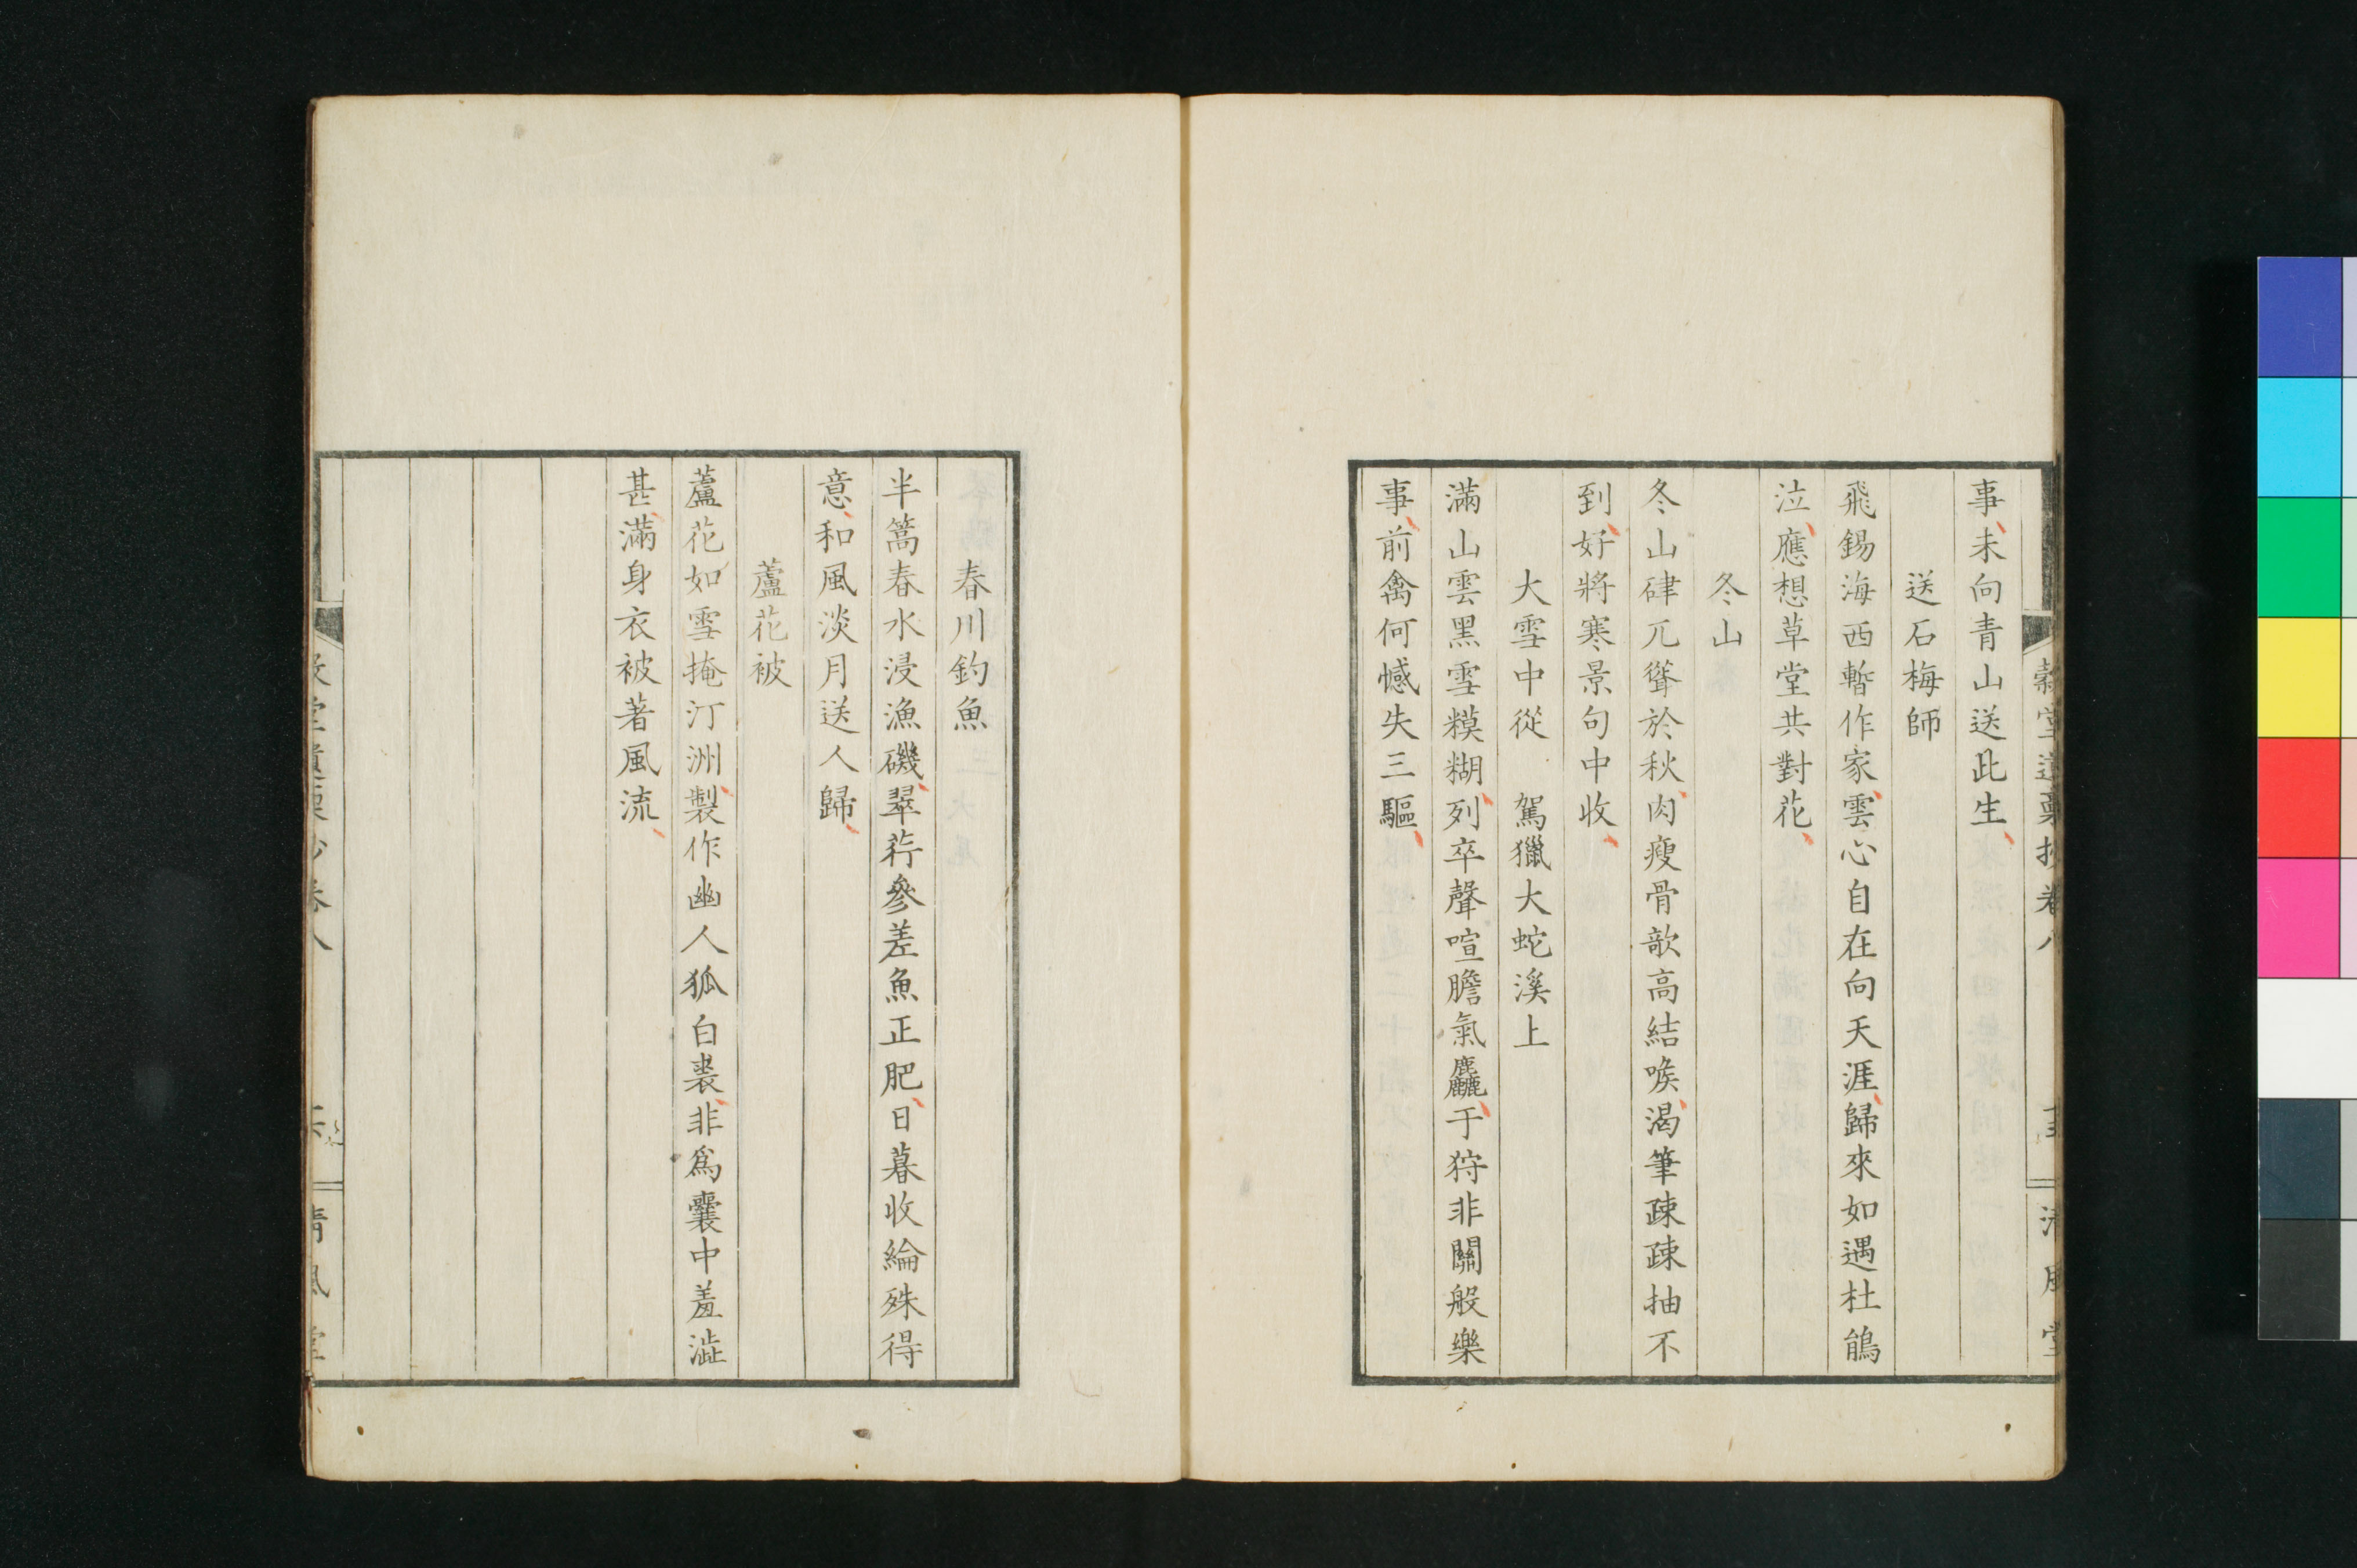 事未向青山送此生
送石梅師
飛錫海西暫作家雲心自在向天涯歸來如遇杜鵑
泣應想草堂共對花
冬山
冬山硉兀聳於秋肉瘦骨歆高結喉渴筆疎疎抽不
到好將寒景句中收
大雪中從 駕獵大蛇溪上
滿山雲黑雪糢糊列卒聲喧膽氣麤于狩非關般樂
事前禽何憾失三驅
春川釣魚
半篙春水浸漁磯翠荇參差魚正肥日暮收綸殊得
意和風淡月送人歸
蘆花被
蘆花如雪掩汀洲製作幽人狐白裘非爲囊中羞澁
甚滿身衣被著風流